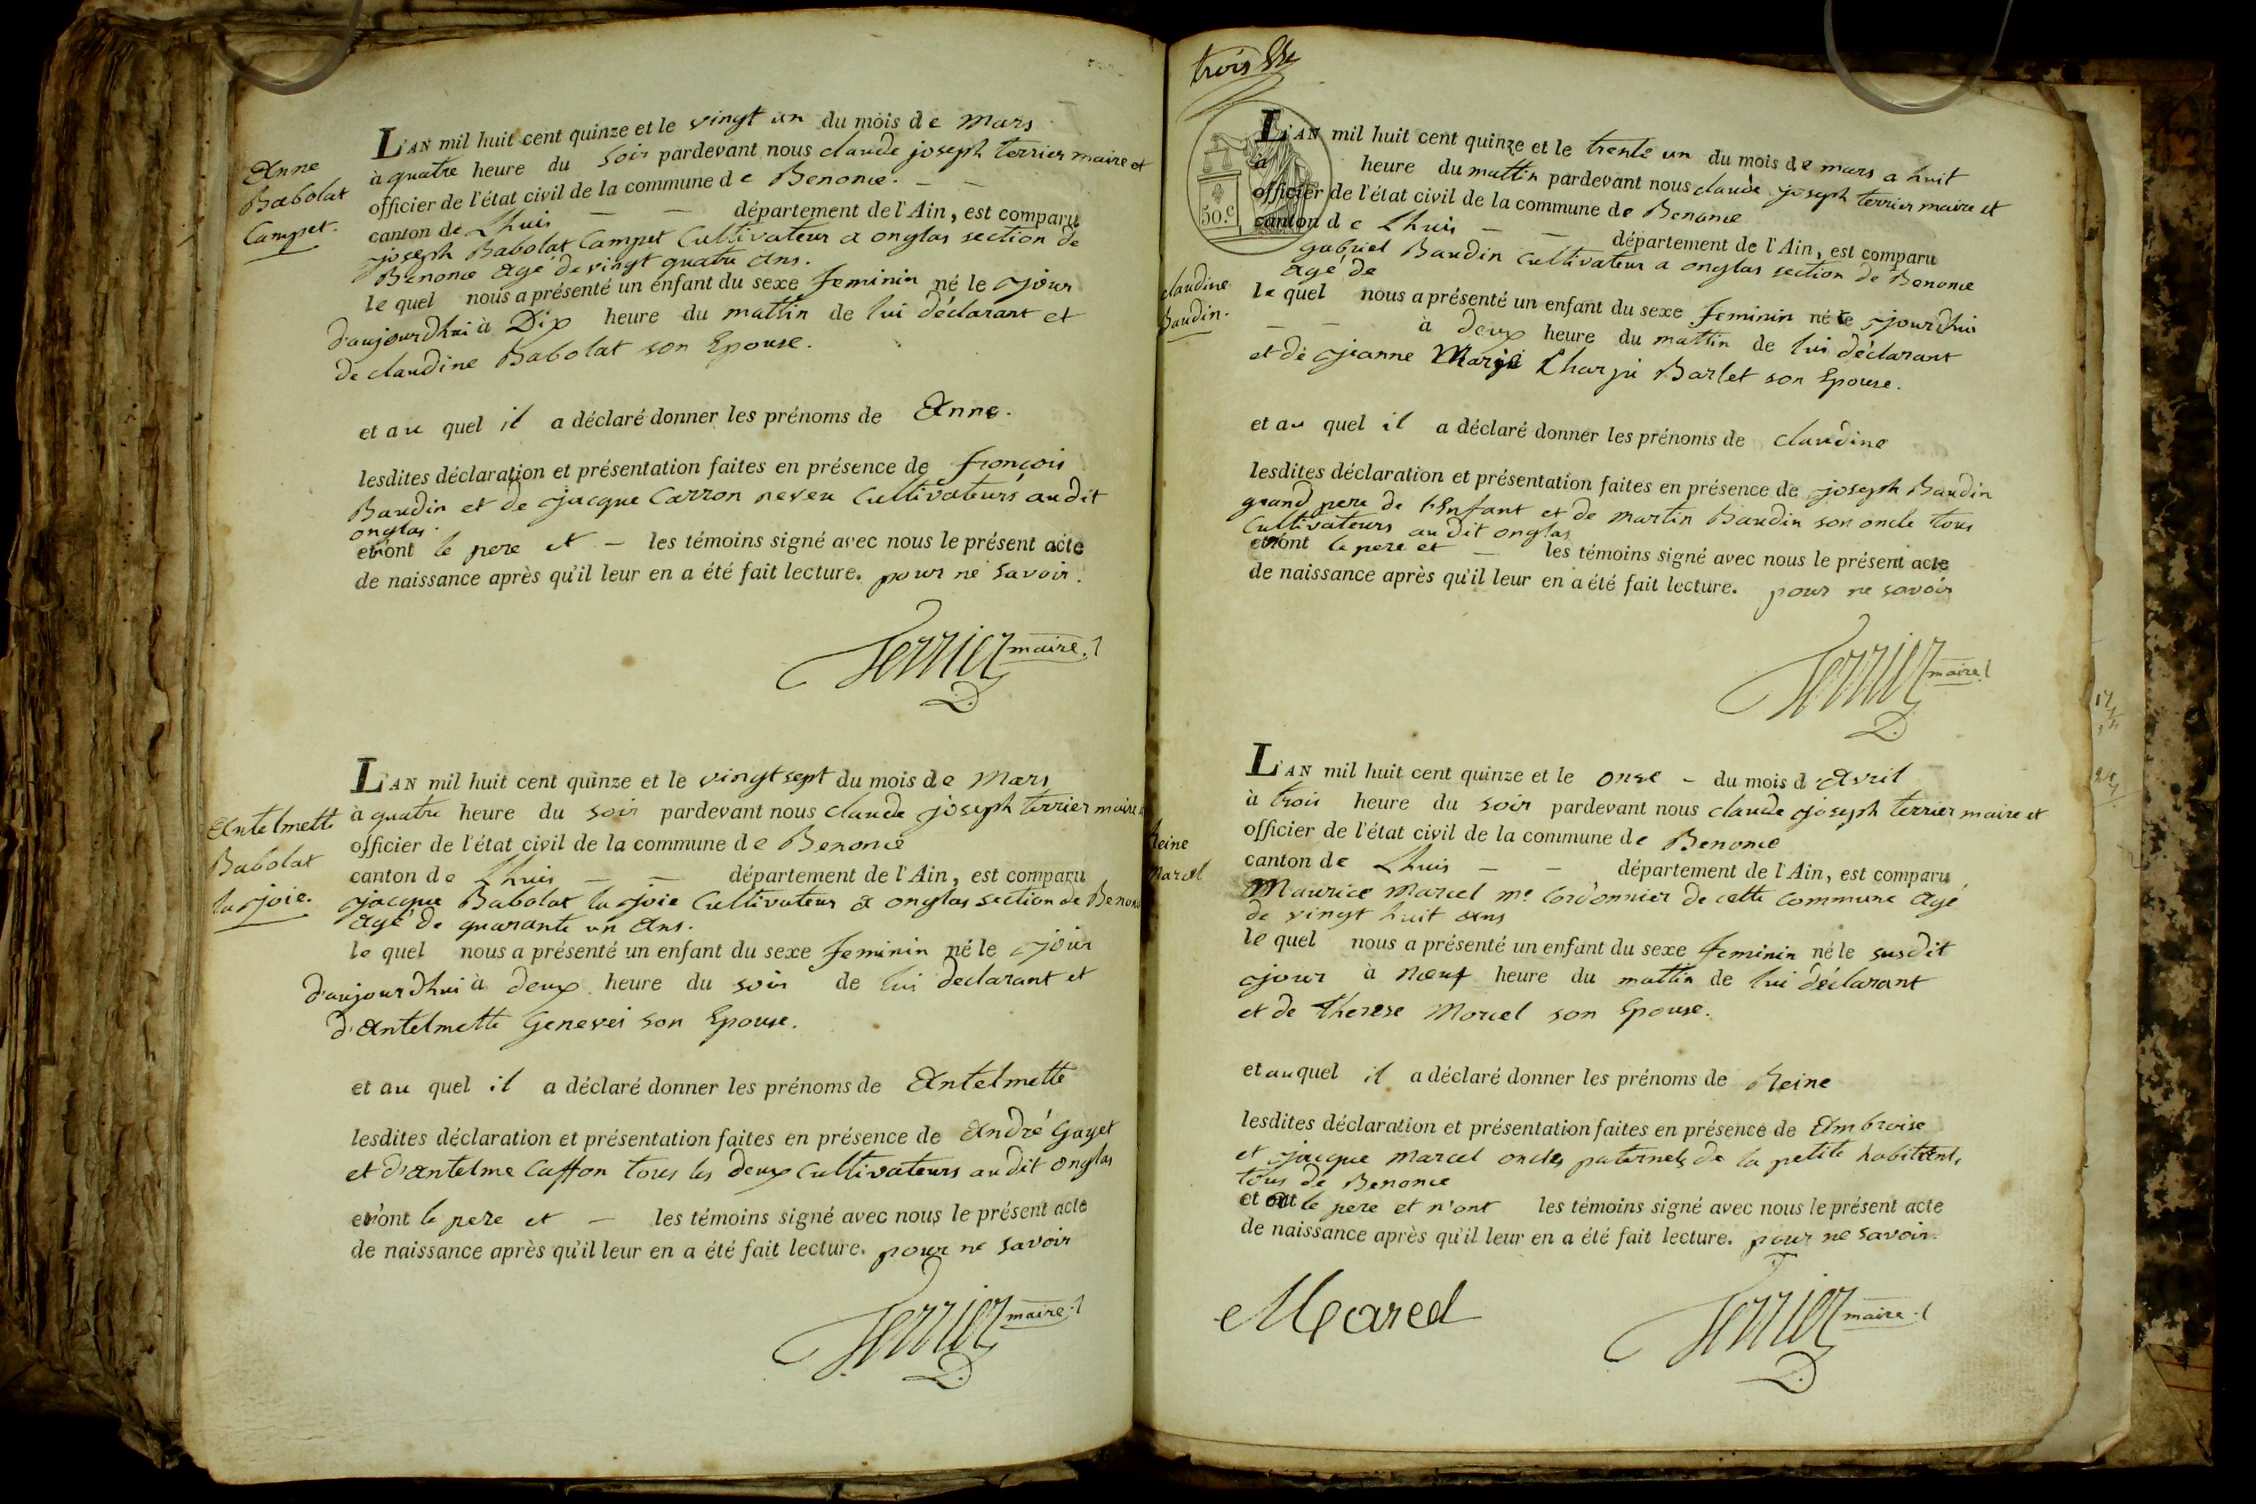 Anne
Babolat
Campet.
L'AN mil huit cent quinze et le vingt un du mois de Mars
à quatre heure du soir pardevant nous claude joseph terrier maire et
officier de l'état civil de la commune de Benonce. — —
canton de Lhuis — — département de l'Ain, est comparu
joseph Babolat Campet Cultivateur a onglas section de
Benonce Agé de vingt quatre Ans.
le quel nous a présenté un enfant du sexe feminin né le jour
d'aujourd'hui à Dix heure du mattin de lui déclarant et
De claudine Babolat son Epouse.
et au quel il a déclaré donner les prénoms de Anne.
lesdites déclaration et présentation faites en présence de françois
Baudin et de jacque Carron neveu Cultivateurs audit
onglas.
et n'ont le pere et — les témoins signé avec nous le présent acte
de naissance après qu'il leur en a été fait lecture. pour ne savoir.
Terrier maire
Antelmette
Babolat
la joie.
L'AN mil huit cent quinze et le vingt sept du mois de Mars
à quatre heure du soir pardevant nous claude joseph terrier maire
officier de l'état civil de la commune de Benonce
canton de Lhuis — — département de l'Ain, est comparu
jacque Babolat la joie Cultivateur a onglas section de Benonce
Agé de quarante un Ans.
le quel nous a présenté un enfant du sexe feminin né le jour
d'aujourd'hui à deux heure du soir de lui déclarant et
d'Antelmette Genevei son Epouse.
et au quel il a déclaré donner les prénoms de Antelmette
lesdites déclaration et présentation faites en présence de André Gayet
et d'Antelme Caffon tous les deux Cultivateurs audit onglas
et n'ont le pere et — les témoins signé avec nous le présent acte
de naissance après qu'il leur en a été fait lecture. pour ne savoir
Terrier maire
trois
50.c
claudine
Baudin.
L'AN mil huit cent quinze et le trente un du mois de mars a huit
à heure du mattin pardevant nous claude joseph terrier maire et
officier de l'état civil de la commune de Benonce
canton de Lhuis — — département de l'Ain, est comparu
gabriel Baudin Cultivateur a onglas section de Benonce
Agé de
le quel nous a présenté un enfant du sexe feminin né le jourd'hui
— — à deux heure du mattin de lui déclarant
et de jeanne Marie Charju Barlet son Epouse.
et au quel il a déclaré donner les prénoms de claudine
lesdites déclaration et présentation faites en présence de joseph Baudin
grand pere de l'Enfant et de martin Baudin son oncle tous
Cultivateurs audit onglas
et n'ont le pere et — les témoins signé avec nous le présent acte
de naissance après qu'il leur en a été fait lecture. pour ne savoir
Terrier maire
Reine
Marcel
L'AN mil huit cent quinze et le onze — du mois d'Avril
à trois heure du soir pardevant nous claude joseph terrier maire et
officier de l'état civil de la commune de Benonce
canton de Lhuis — — département de l'Ain, est comparu
Maurice Marcel me Cordonnier de cette Commune Agé
de vingt huit ans
le quel nous a présenté un enfant du sexe feminin né le susdit
jour à neuf heure du mattin de lui déclarant
et de therese Morcel son Epouse.
et au quel il a déclaré donner les prénoms de Reine
lesdites déclaration et présentation faites en présence de Ambroise
et jacque Marcel oncles paternels de la petite habitants
tous de Benonce
et ont le pere et n'ont les témoins signé avec nous le présent acte
de naissance après qu'il leur en a été fait lecture. pour ne savoir.
Marcel
Terrier maire